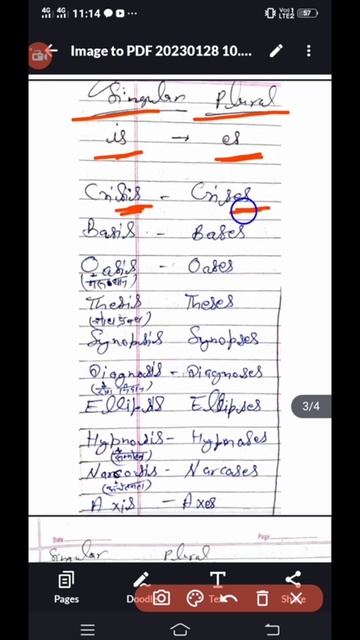 4G 4G 11:14 57
Image to PDF 20230128 10....
Singular Plural
is → es
Crisis - Crises
Basis - Bases
Oasis - Oases
Thesis Theses
Synopsis Synopses
Diagnosis - Diagnoses
Ellipsis Ellipses
3/4
Hypnosis - Hypnoses
Narcosis - Narcoses
Axis - Axes
Date Page
Singular Plural
Pages Dood Te Share